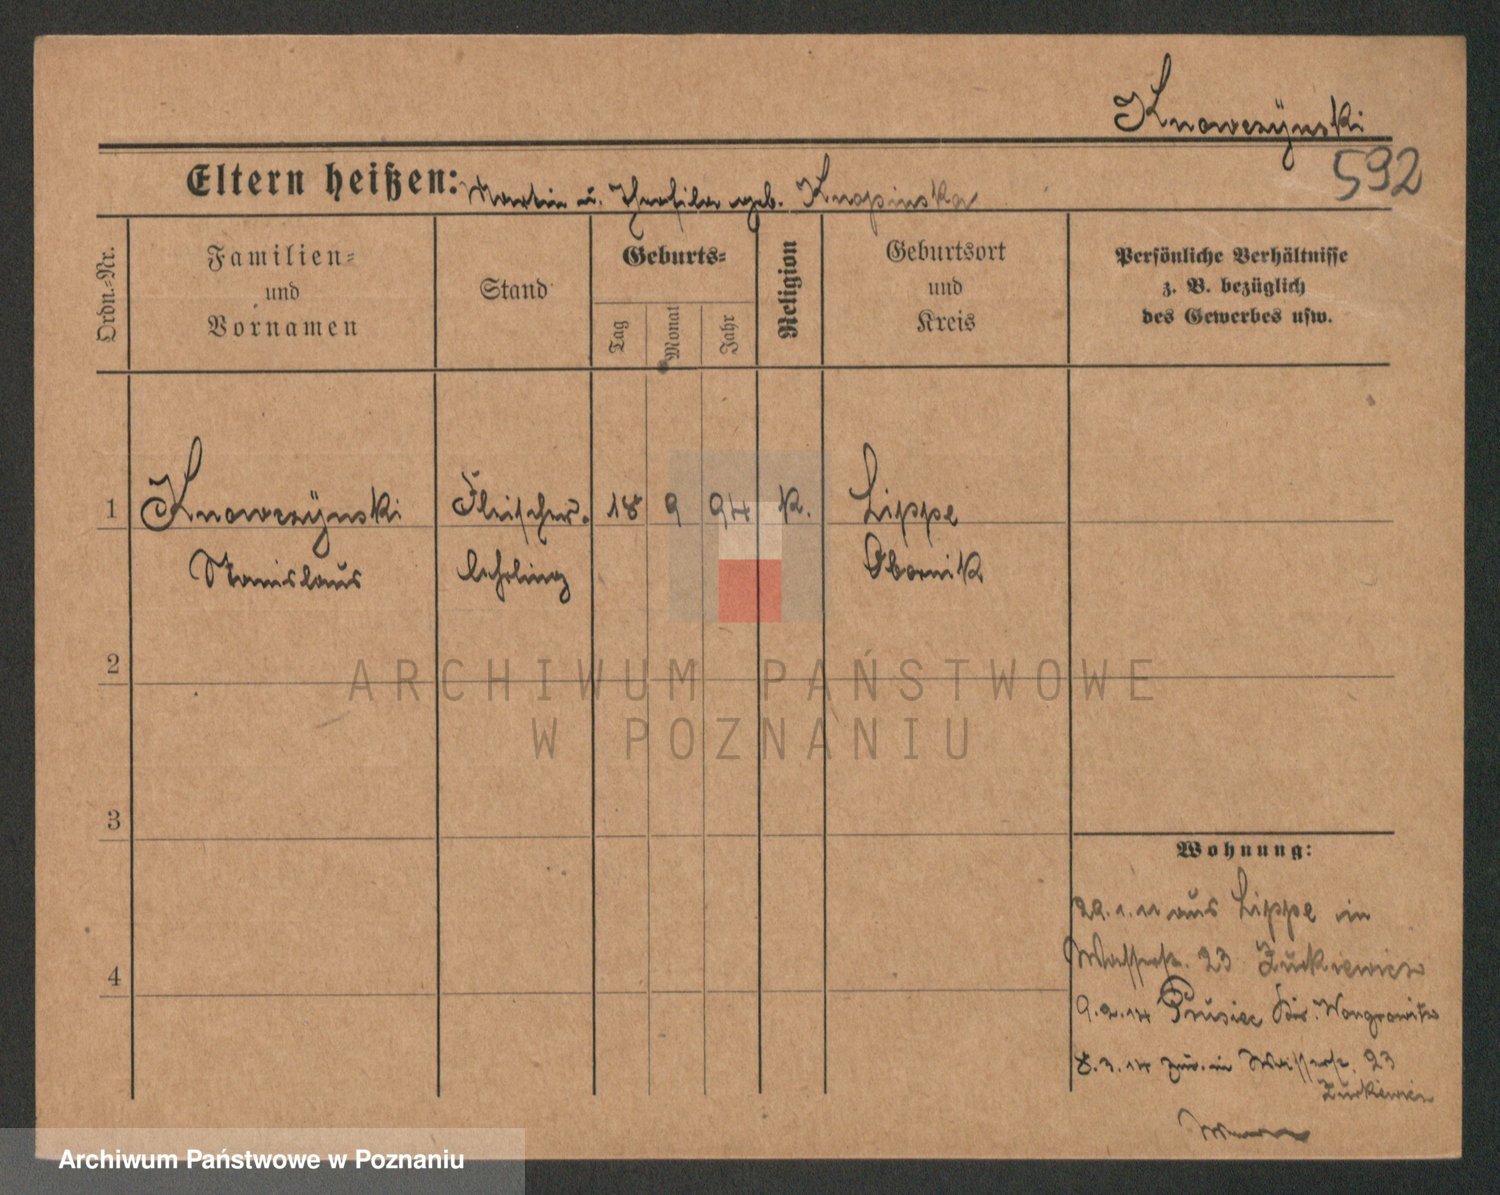 Knowczÿnski
592
Eltern heißen: Martin u. Theofila geb. Knapinska
Ordn.-Nr.
Familien-
und
Vornamen
Stand
Geburts-
Tag
Monat
Jahr
Religion
Geburtsort
und
Kreis
Persönliche Verhältnisse
z. B. bezüglich
des Gewerbes usw.
1 Knowczÿnski Fleischer- 18 9 94 k. Lippe
Stanislaus lehrling Obornik
2
ARCHIWUM PAŃSTWOWE
W POZNANIU
3
Wohnung:
22.1.11 aus Lippe in
Wasserstr. 23 Zurkiewicz
4
9.2.14 Prusiec Kr. Wongrowitz
8.3.14 zur. in Wasserstr. 23
Zurkiewicz
Archiwum Państwowe w Poznaniu